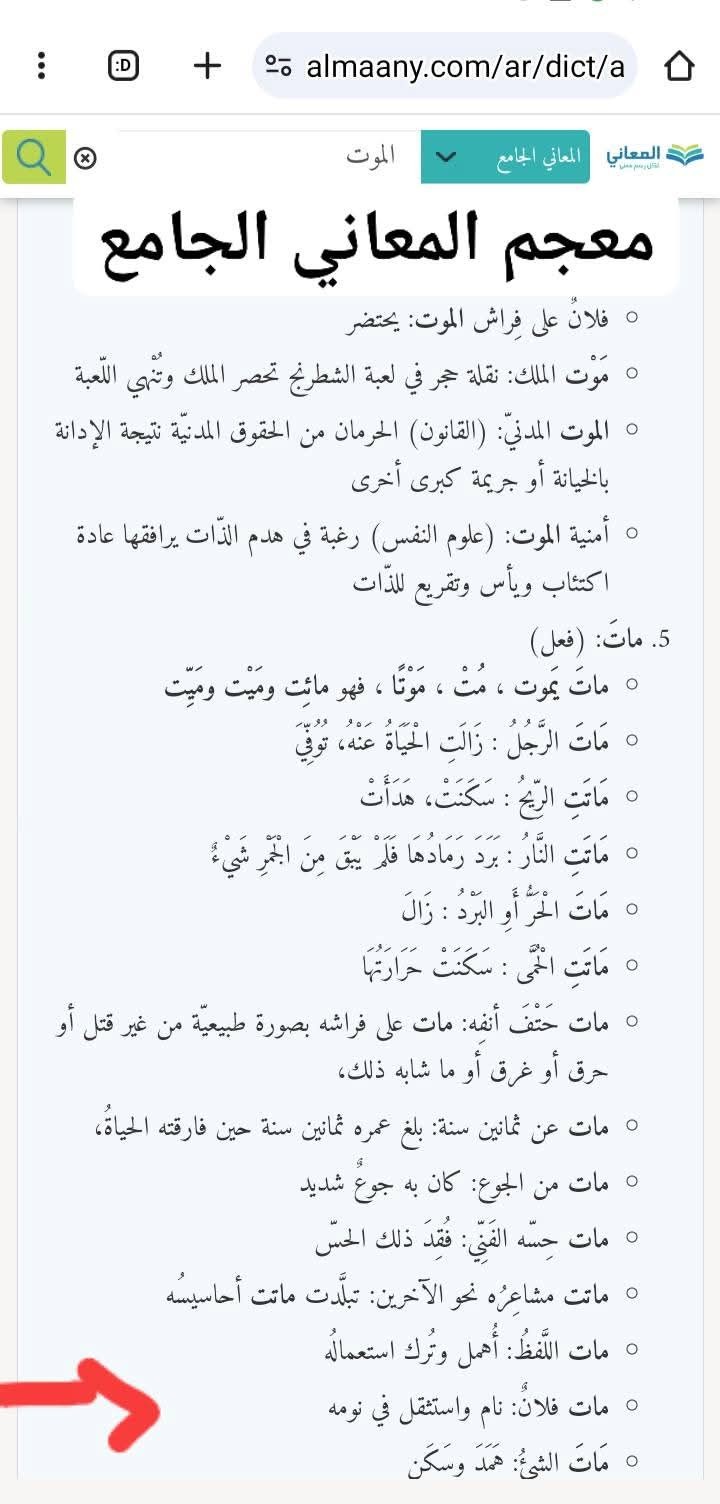 almaany.com/ar/dict/a
المعاني
لكل رسم معنى
المعاني الجامع
الموت
معجم المعاني الجامع
فلانٌ على فِراش الموت: يحتضر
مَوْت الملك: نقلة حجر في لعبة الشطرنج تحصر الملك وتُنْهي اللّعبة
الموت المدنيّ: (القانون) الحرمان من الحقوق المدنيّة نتيجة الإدانة
بالخيانة أو جريمة كبرى أخرى
أمنية الموت: (علوم النفس) رغبة في هدم الذّات يرافقها عادة
اكتئاب ويأس وتقريع للذّات
5. ماتَ: (فعل)
ماتَ يَموت ، مُتْ ، مَوْتًا ، فهو مائِت ومَيْت ومَيِّت
مَاتَ الرَّجُلُ : زَالَتِ الْحَيَاةُ عَنْهُ، تُوُفِّيَ
مَاتَتِ الرِّيحُ : سَكَنَتْ، هَدَأَتْ
مَاتَتِ النَّارُ : بَرَدَ رَمَادُهَا فَلَمْ يَبْقَ مِنَ الْجَمْرِ شَيْءٌ
مَاتَ الْحَرُّ أَوِ البَرْدُ : زَالَ
مَاتَتِ الْحُمَّى : سَكَنَتْ حَرَارَتُهَا
مات حَتْفَ أنفِه: مات على فراشه بصورة طبيعيّة من غير قتل أو
حرق أو غرق أو ما شابه ذلك،
مات عن ثمانين سنة: بلغ عمره ثمانين سنة حين فارقته الحياةُ،
مات من الجوع: كان به جوعٌ شديد
مات حِسّه الفَنِّي: فُقِدَ ذلك الحسّ
ماتت مشاعِرُه نحو الآخرين: تبلَّدت ماتت أحاسيسُه
مات اللَّفظُ: أُهمل وتُرك استعمالُه
مات فلانٌ: نام واستثقل في نومه
مَاتَ الشيءُ: هَمَدَ وسَكَن